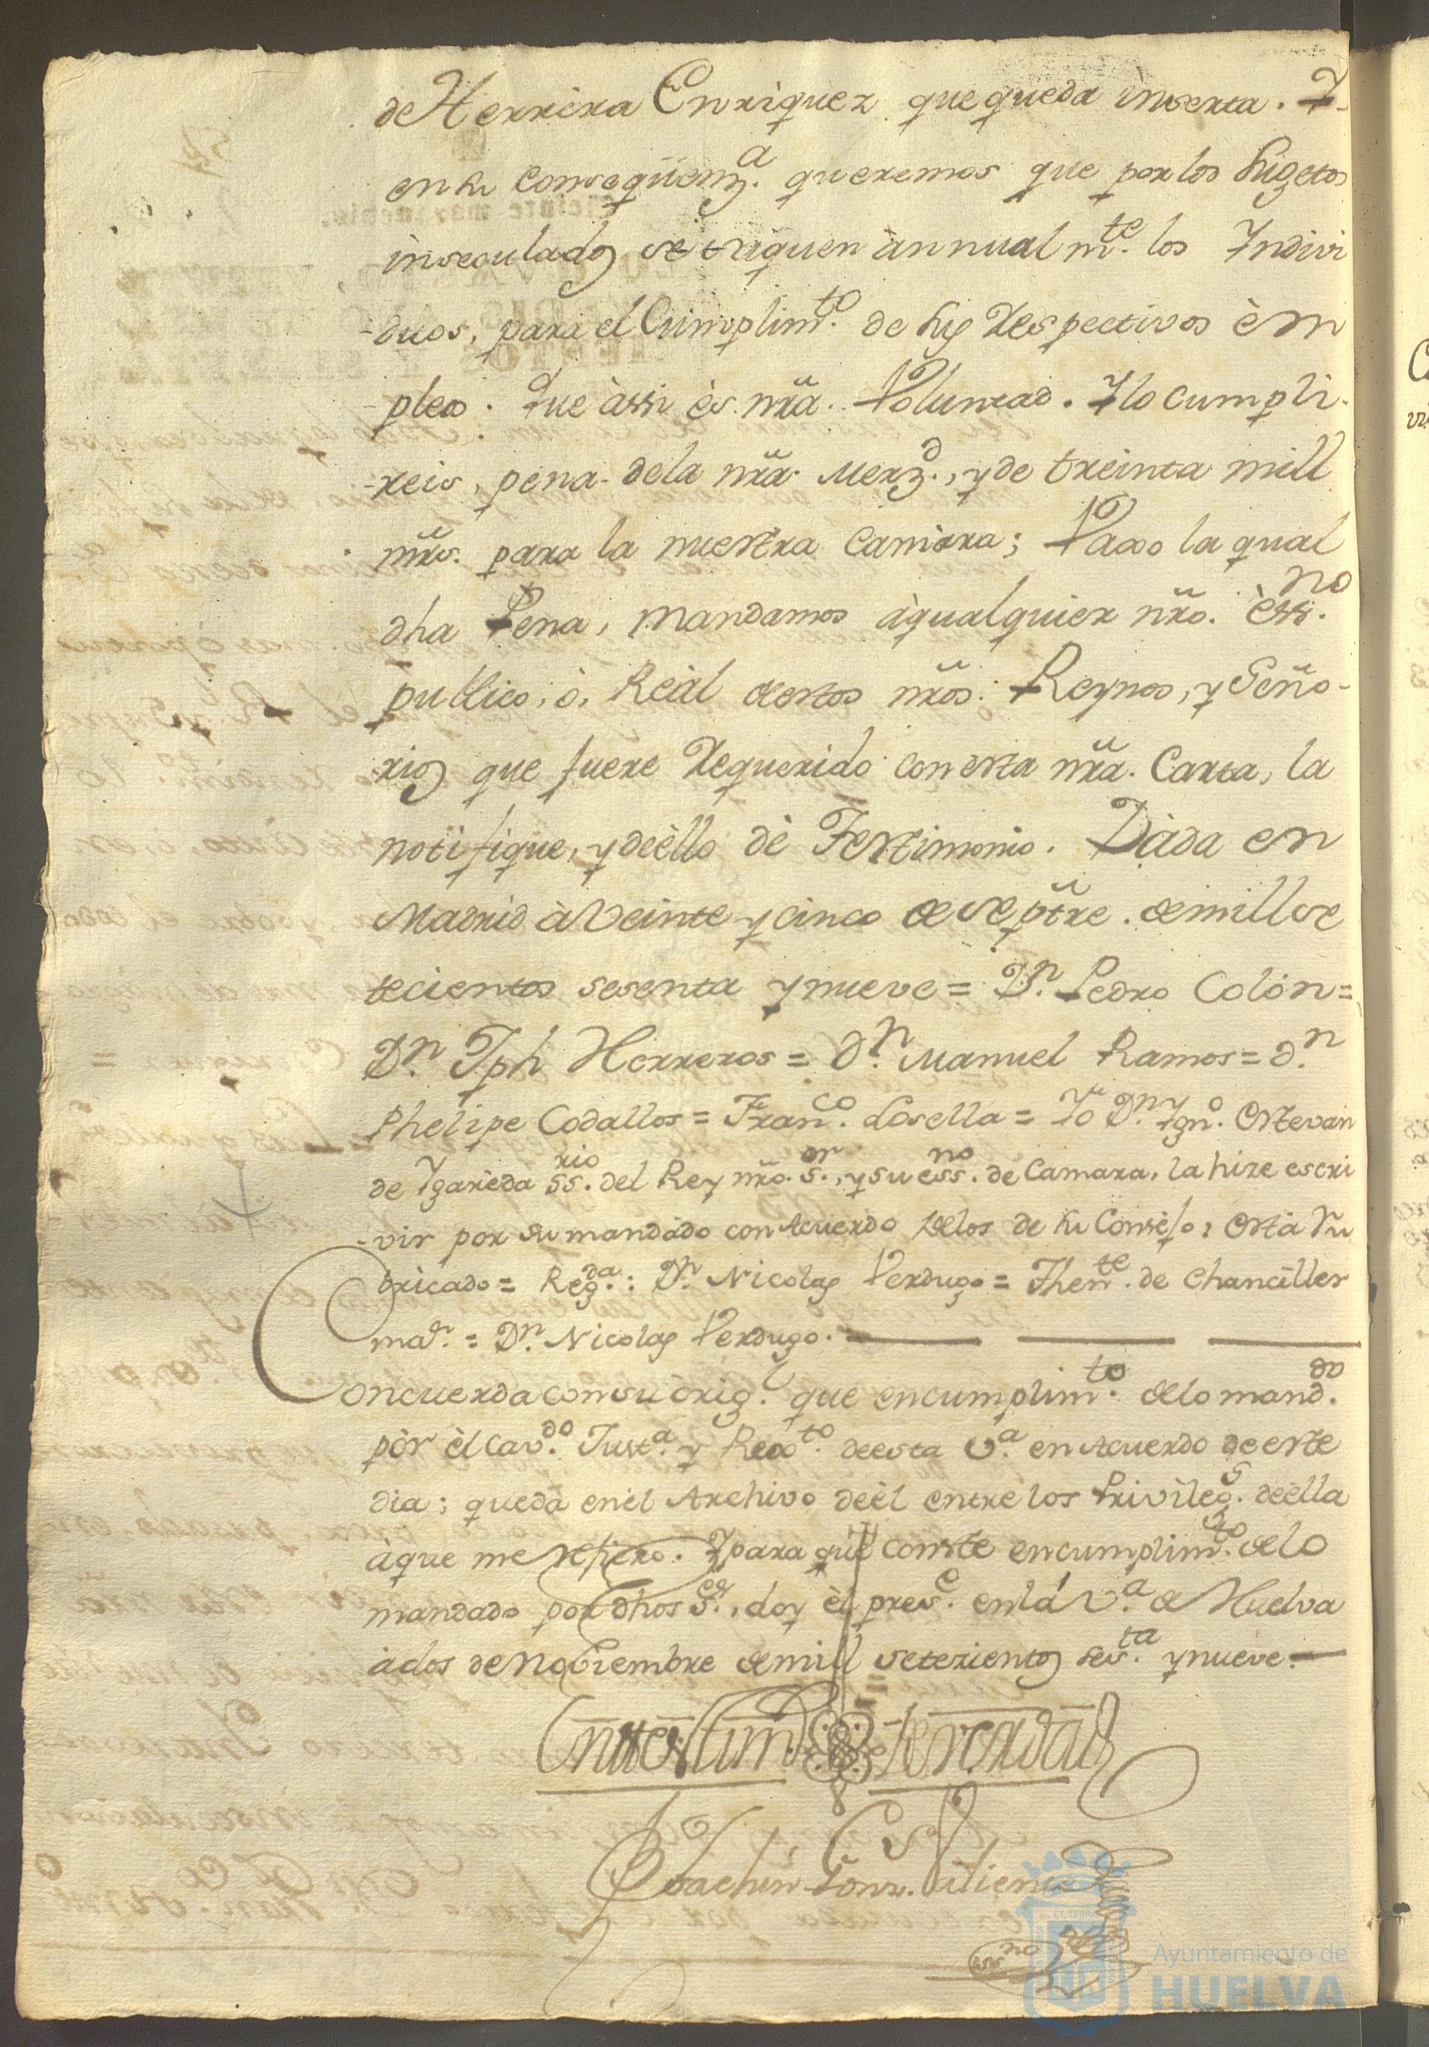 de Herrera Enrriquez que queda inserta. Y
en su consequenz.ª queremos que por los sugetos
inseculados se saquen annualm.te los Yndivi
-duos, para el Cumplim.to de sus respectivos em
-pleos. Que assi es nrã. Voluntad. Y lo cumpli-
-reis, pena de la nrã. merz.d, y de treinta mill
mrs̃. para la nuestra Camara; Vaxo la qual
dha Pena, mandamos a qualquier nrõ. ess.no
publico, ò, Real destos nrõs. Reynos, y Seño-
rios que fuere requerido con esta nrã. Carta, la
notifique, y de ello dè Testimonio. Dada en
Madrid à Veinte y cinco de septre. de mill se
tecientos sesenta y nueve = D.n Pedro Colón =
D.n Jph Herreros = d.n Manuel Ramos = d.n
Phelipe Codallos = Fran.co Losella = Yo D.n Ygn.o Estevan
de Ygareda ss.rio del Rey nrõ. s.or, y su ess.no de Camara, la hize escri
-vir por su mandado con Acuerdo de los de su Consejo; està ru
bricado = Reg.da: D.n Nicolas Verdugo = Then.te de Chanciller
ma.or = D.n Nicolas Verdugo.
Concuerda con su orig.l que en cumplim.to de lo mand.do
pòr èl cav.do Just.a y Rex.to de esta V.a en Acuerdo de este
dia; queda en el Archivo de èl entre los Privileg.s de ella
à que me refiero. Y para que conste en cumplim.to de lo
mandado por dhos s.es, doy èl pres.e en la V.a de Huelva
à dos de Noviembre de mill setezientos ses.ta y nueve.
En testim.o de verdad
Joachin Gonz.
ess.no
Ayuntamiento de
HUELVA